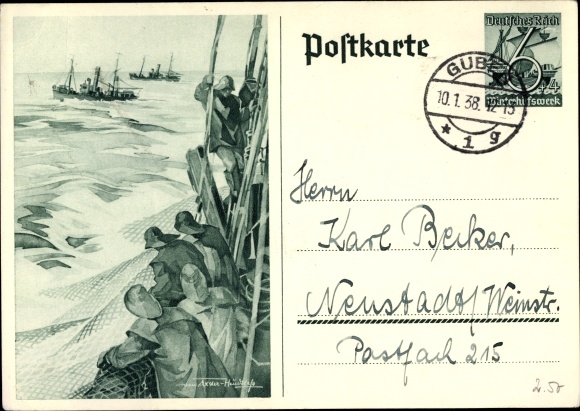 Postkarte
Deutsches Reich
6+4
Winterhilfswerk
GUBEN
10.1.38. 12-13
* 1 g
Herrn
Karl Becker,
Neustadt/Weinstr.
Postfach 215
2.50
Axster-Heudtlaß